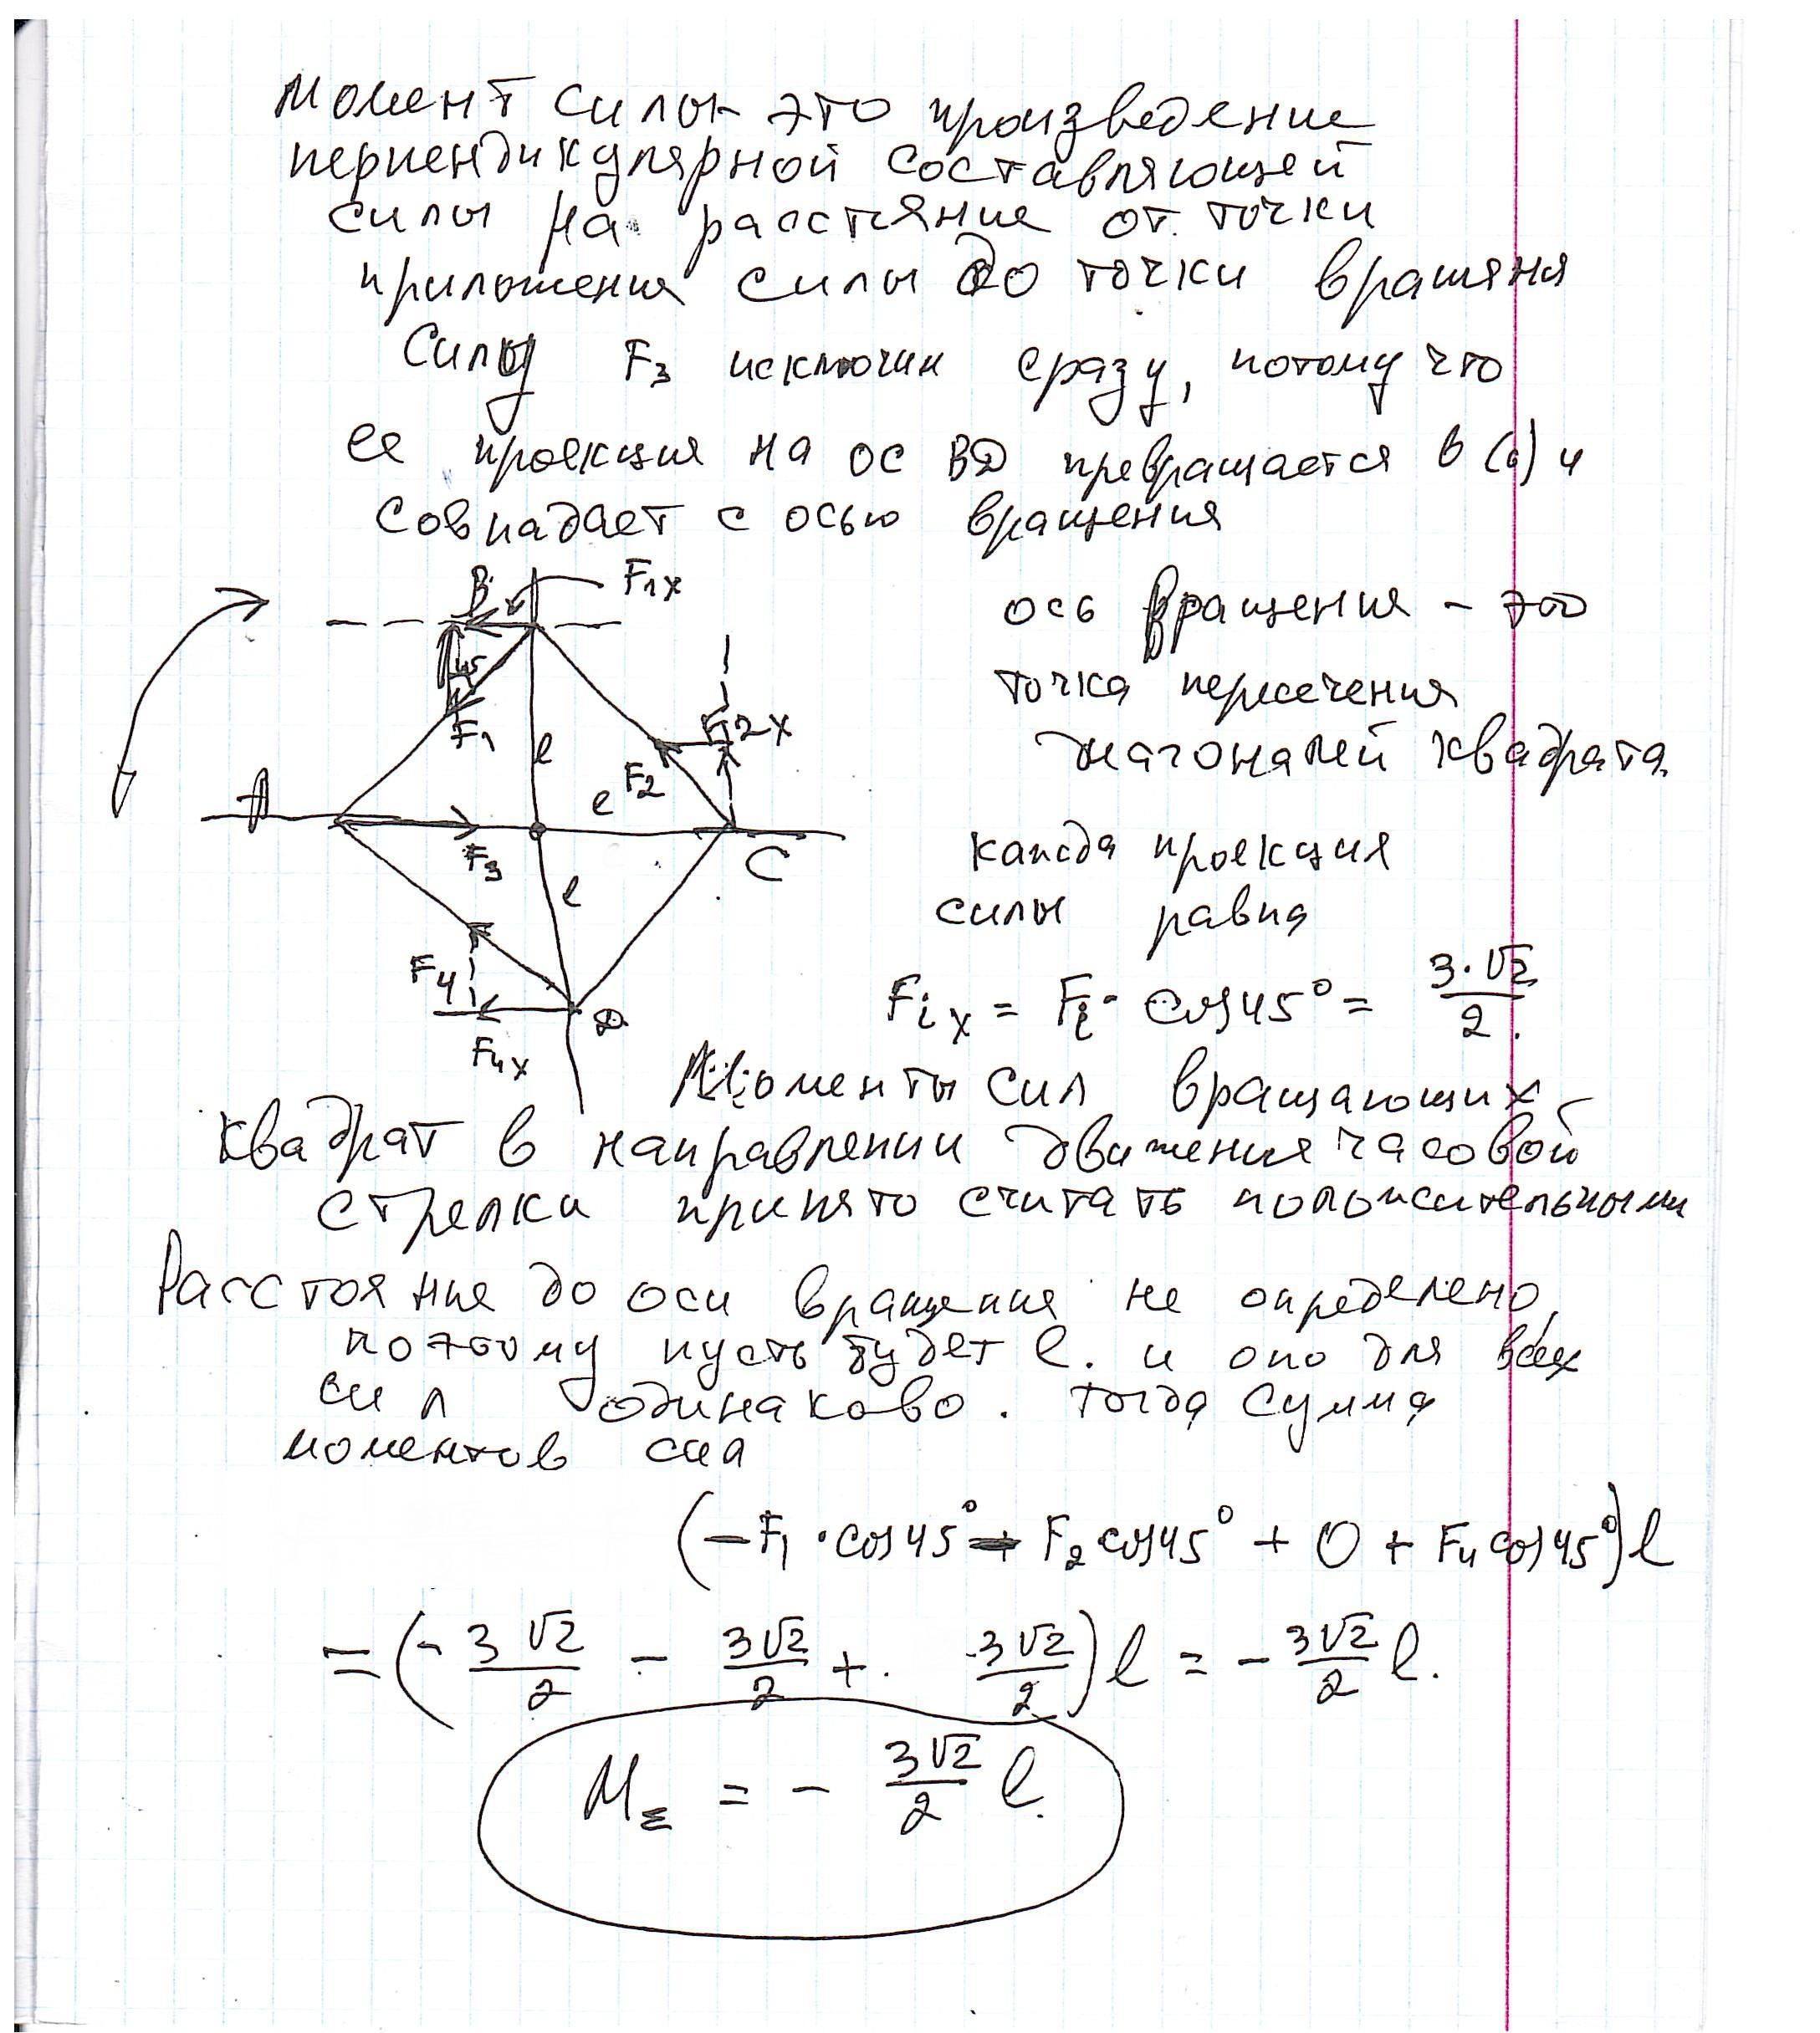 Момент силы это произведение
перпендикулярной составляющей
силы на расстяние от точки
приложения силы до точки вращяня
Силу F₃ исключим сразу, потому что
ее проекция на ос ВД превращается в (0) и
совпадает с осью вращения
B F₁ₓ
ось вращения – это
точка пересечения
диагоналей квадрата
45
F₁ l F₂ₓ
F₂
A l
F₃ C
l
кажда проекция
силы равна
F₄ D
F₄ₓ
Fᵢₓ = Fᵢ · cos 45° = 3·√2/2.
Моменты сил вращающих
квадрат в направлении движения часовой
стрелки принято считать положительными
Расстояние до оси вращения не определено,
поэтому пусть будет l. и оно для всех
сил одинаково. тогда сумма
моментов сил
(–F₁ · cos 45° – F₂ cos 45° + 0 + F₄ cos 45°) l
= (– 3√2/2 – 3√2/2 + 3√2/2) l = – 3√2/2 l.
M_Σ = – 3√2/2 l.